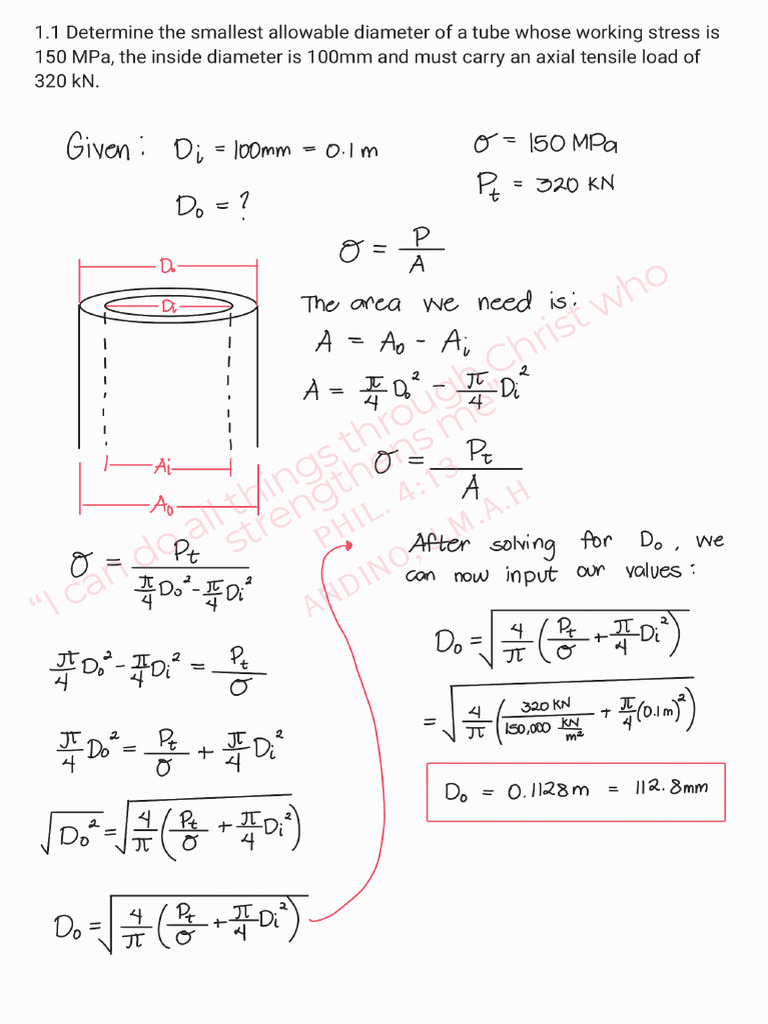 1.1 Determine the smallest allowable diameter of a tube whose working stress is
150 MPa, the inside diameter is 100mm and must carry an axial tensile load of
320 kN.
Given: Di = 100mm = 0.1 m
σ = 150 MPa
Do = ?
Pt = 320 KN
σ = P/A
Do
Di
The area we need is:
A = Ao - Ai
A = π/4 Do² - π/4 Di²
σ = Pt/A
Ai
Ao
σ = Pt/(π/4 Do² - π/4 Di²)
π/4 Do² - π/4 Di² = Pt/σ
π/4 Do² = Pt/σ + π/4 Di²
√(Do²) = √(4/π (Pt/σ + π/4 Di²))
Do = √(4/π (Pt/σ + π/4 Di²))
After solving for Do, we
can now input our values:
Do = √(4/π (Pt/σ + π/4 Di²))
= √(4/π (320 KN/(150,000 KN/m²) + π/4 (0.1m)²))
Do = 0.1128 m = 112.8mm
"I can do all things through Christ who
strengthens me"
PHIL. 4:13